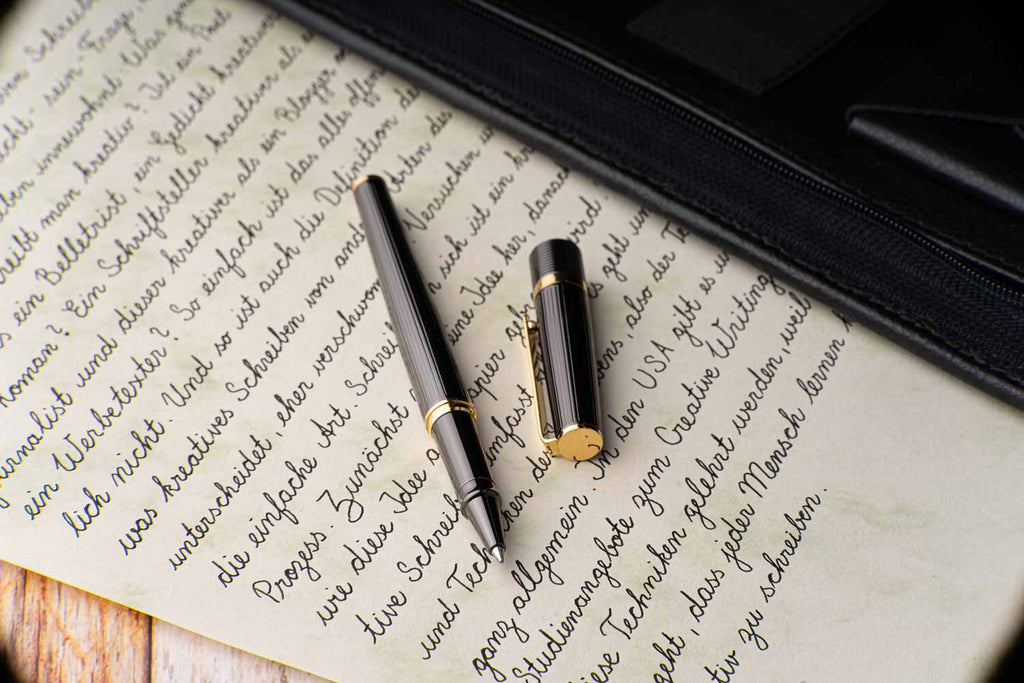 Schreib
cht- sein- Frage
ben innewohnt. Was gen
reibt man kreativ? Ist ein Poet
s ein Belletrist, ein Gedicht kreativer
Roman? Ein Schriftsteller kreativer als e
urnalist und dieser kreativer als ein Blogge
ein Werbetexter? So einfach ist das alles offe
lich nicht. Und so ist auch die Definition de
was kreatives Schreiben von ande rten des
unterscheidet, eher verschwom Versuchen
die einfache Art. Schrei sich ist ein kr
Prozess. Zunächst eine Idee her, danac
wie diese Idee a apier ge wird. s geht um
tive Schreib umfasst ens, also der Te
und Tech ken de n den USA gibt es un
ganz allgemein. In Creative Writing
Studienangebote zum
iese Techniken gelehrt werden, weil
geht, dass jeder Mensch lernen
tiv zu schreiben.